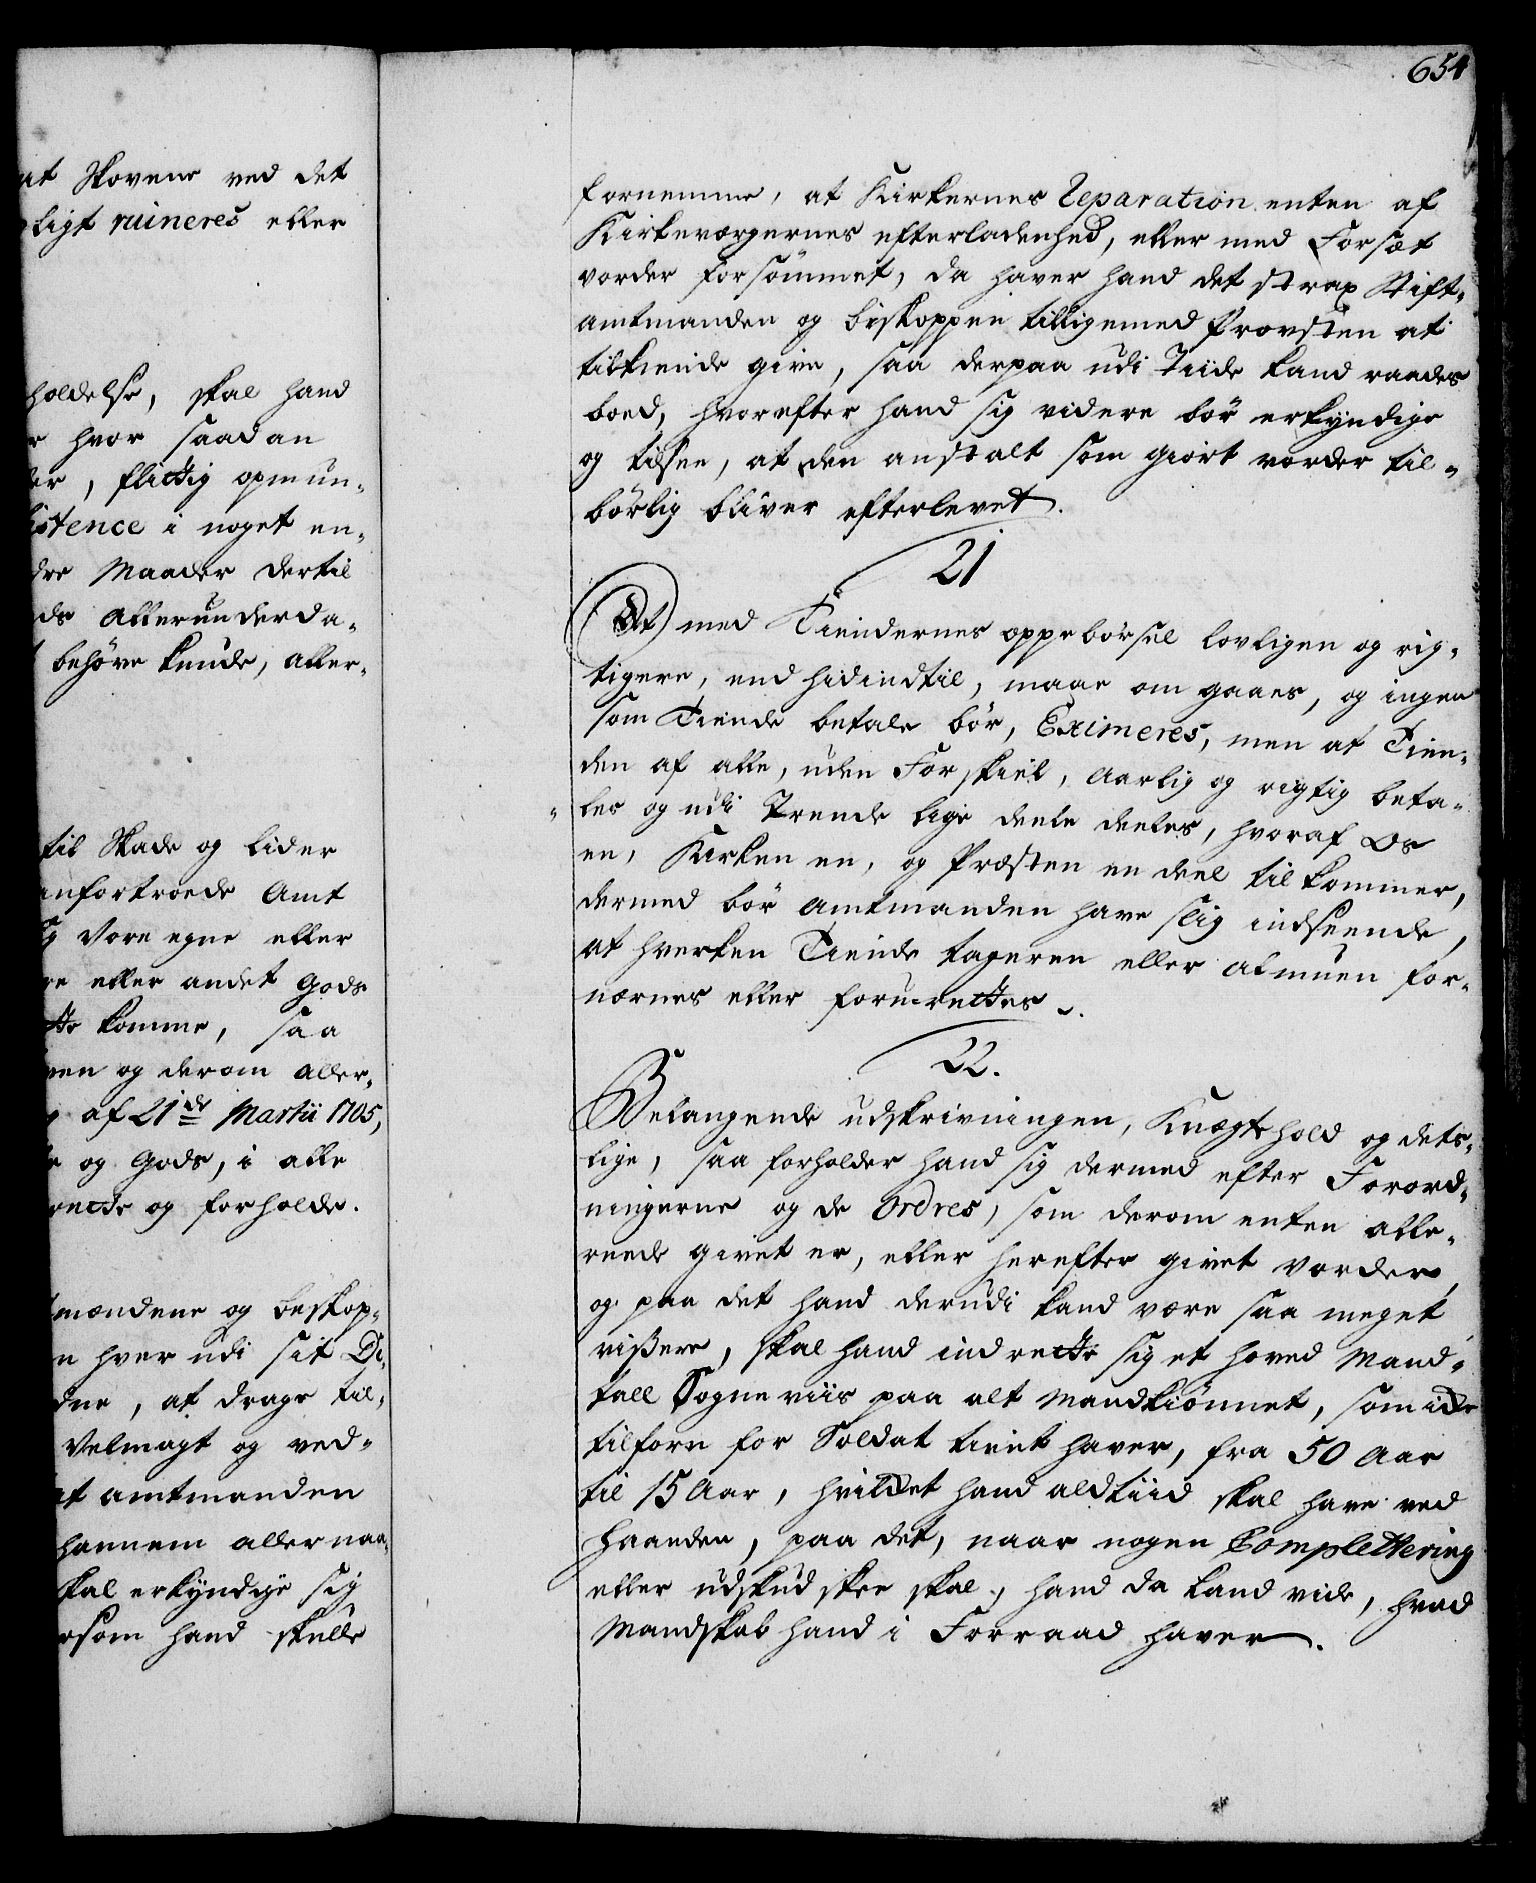 at Skovene ved det
ligt ruineres eller
holdelse, skal hand
hvor saadan
er, flittig opmun-
istence i noget en-
dre Maader dertil
ds Allerunderda-
behöve kunde, aller-
til Skade og lider
anfortroede Amt
Vore egne eller
re eller andet Gods
komme, saa
en og derom aller-
af 21de Martii 1705,
og Gods, i alle
rette og forholde.
mændene og biskop-
n hver udi sit Di-
dne, at drage til-
Velmagt og ved-
at amtmanden
hannem allernaa-
skal erkyndige sig
rsom hand skulle
654
fornemme, at Kirkernes Reparation enten af
Kirkeværgernes efterladenhed, eller med Forsæt
vorder forsömmet, da haver hand det strax Stift-
amtmanden og biskoppen tilligemed Provsten at
tilkiende give, saa derpaa udi Tiide kand raades
boed, hvorefter hand sig videre bör erkyndige
og tilsee, at den anstalt som giort vorder til-
börlig bliver efterlevet.
21
At med Tiendernes oppebörsel lovligen og rig-
tigere, end hidindtil, maae om gaaes, og ingen
som Tiende betale bör, Eximeres, men at Tien-
den af alle, uden Forskiel, Aarlig og rigtig beta-
les og udi Trende lige deele deeles, hvoraf Os
en, Kirken en, og Præsten en deel tilkommer,
dermed bör Amtmanden have slig indseende,
at hverken Tiende tageren eller almuen for-
nærmes eller foruerettes.
22.
Belangende udskrivningen, Knægtehold og dets-
lige, saa forholder hand sig dermed efter Forord-
ningerne og de Ordres, som derom enten alle-
reede givet er, eller herefter givet vorder,
og paa det hand derudi kand være saa meget
vissere, skal hand indrette sig et hoved Mand-
tall Sogneviis paa alt Mandkiönnet, som icke
tilforn for Soldat tient haver, fra 50 Aar
til 15 Aar, hvilcket hand aldtiid skal have ved
haanden, paa det, naar nogen Complettering
eller udskud skee skal, hand da kand vide, hvad
Mandskab hand i Forraad haver.